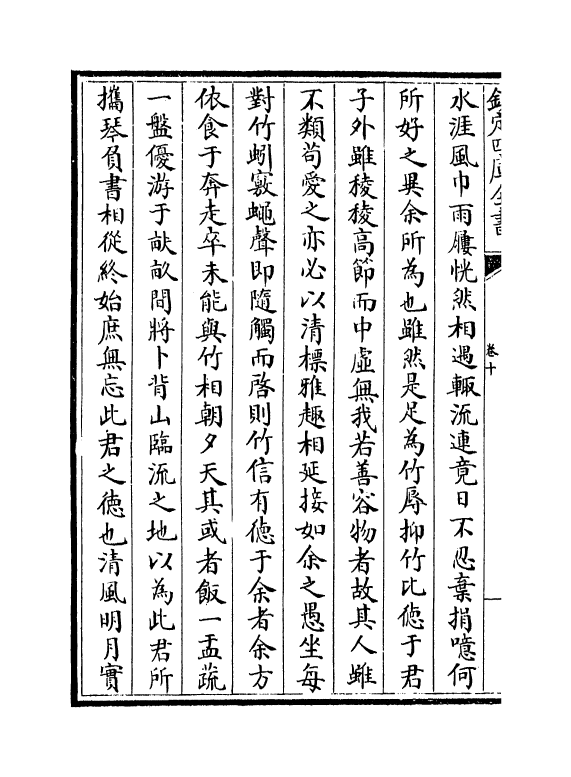 欽定四庫全書
卷十
水涯風巾雨屨恍然相遇輙流連竟日不忍棄捐噫何
所好之異余所為也雖然是足為竹辱抑竹比徳于君
子外雖稜稜高節而中虛無我若善容物者故其人雖
不類苟愛之亦必以清標雅趣相延接如余之愚坐每
對竹蚓竅蠅聲即隨觸而啓則竹信有徳于余者余方
依食于奔走卒未能與竹相朝夕天其或者飯一盂蔬
一盤優游于畎畝間將卜背山臨流之地以為此君所
攜琴負書相從終始庶無忘此君之徳也清風明月實